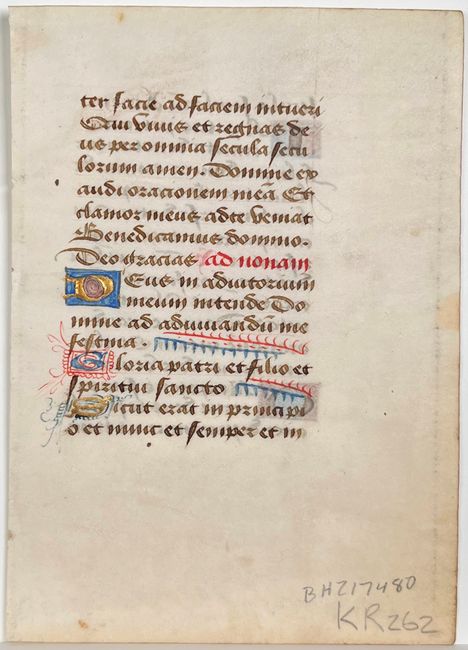 ter facie ad faciem intueri
Qui vivis et regnas de
us per omnia secula secu
lorum amen. Domine ex
audi orationem meā Et
clamor meus ad te veniat
Benedicamus domino.
Deo gracias ad nonam
Deus in adiutorium
meum intende Do
mine ad adiuvandū me
festina.
Gloria patri et filio et
spiritui sancto
Sicut erat in principi
o et nunc et semper et in
BHZ17480
KR262